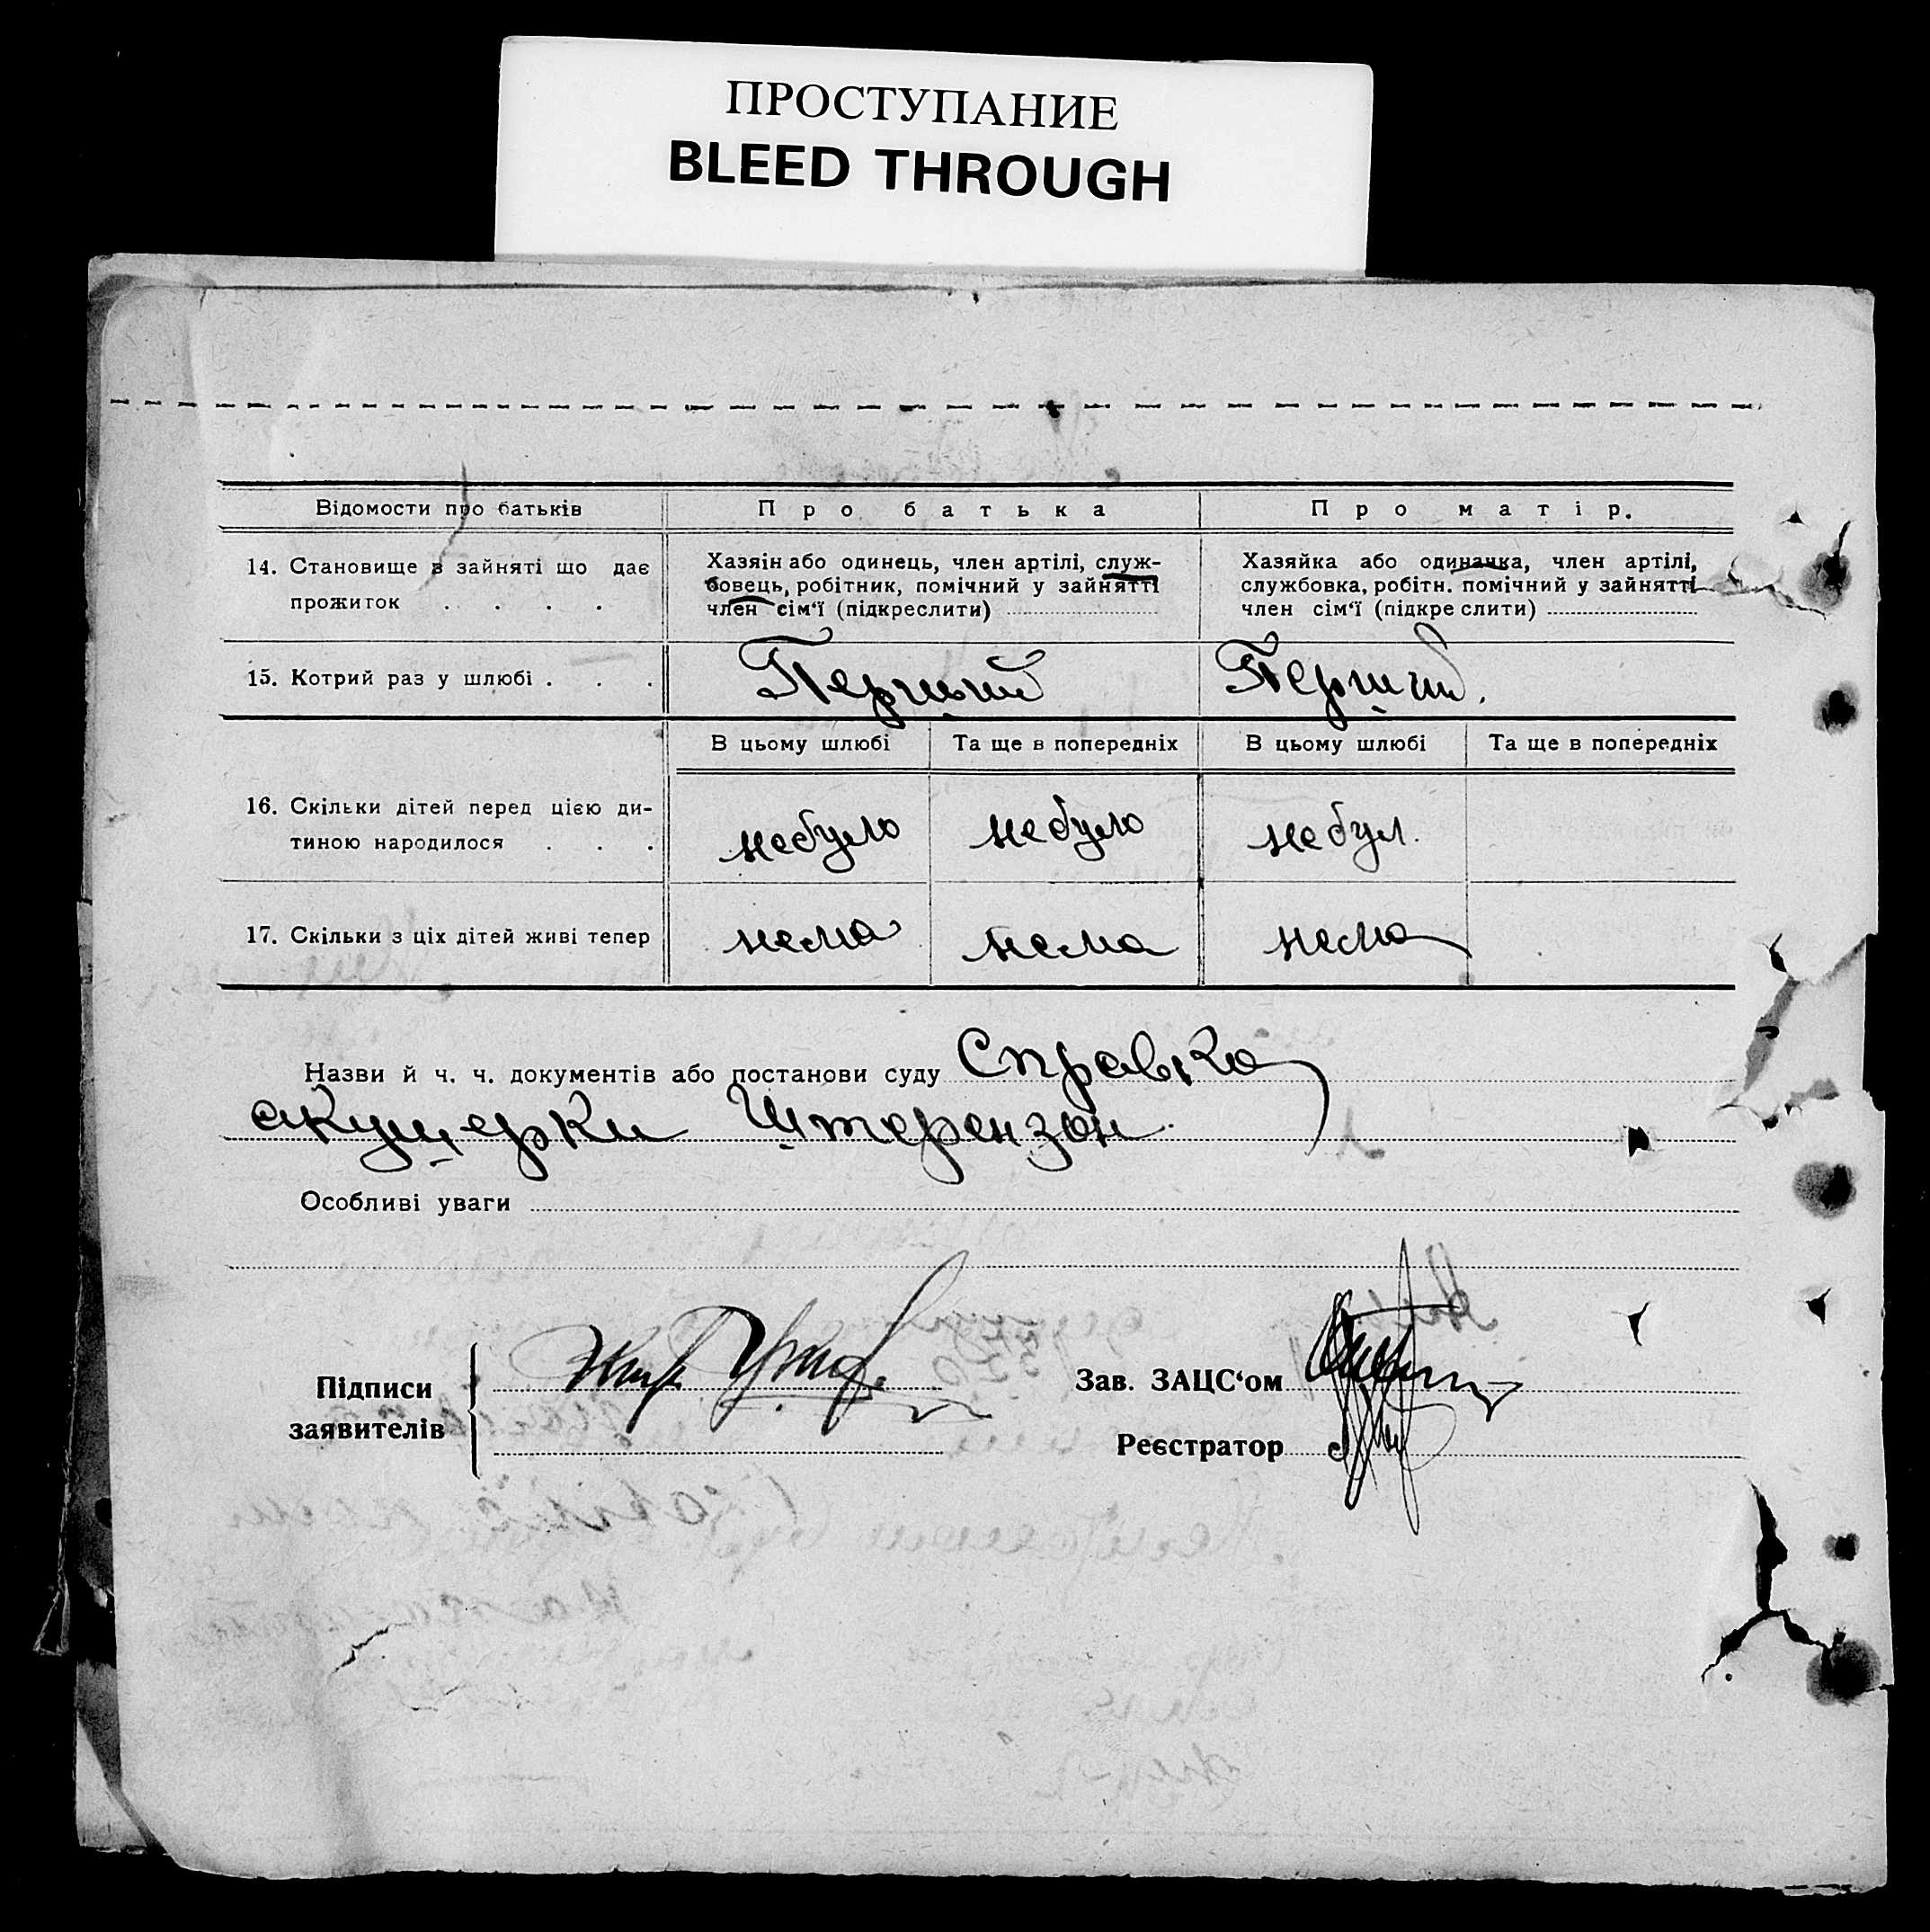 ПРОСТУПАНИЕ
BLEED THROUGH
Відомости про батьків
Про батька
Про матір.
14. Становище в зайняті що дає
прожиток . . . .
Хазяін або одинець, член артілі, служ-
бовець, робітник, помічний у зайнятті
член сім‘ї (підкреслити)
Хазяйка або одиначка, член артілі,
службовка, робітн. помічний у зайнятті
член сім‘ї (підкре слити)
15. Котрий раз у шлюбі . . .
Перший
Перший.
В цьому шлюбі
Та ще в попередніх
В цьому шлюбі
Та ще в попередніх
16. Скільки дітей перед цією ди-
тиною народилося . . .
небуло
небуло
небул.
17. Скільки з ціх дітей живі тепер
нема
нема
нема
Назви й ч. ч. документів або постанови суду Справка
акушерки Штерензон.
Особливі уваги
Підписи
заявителів
Зав. ЗАЦС‘ом
Реєстратор